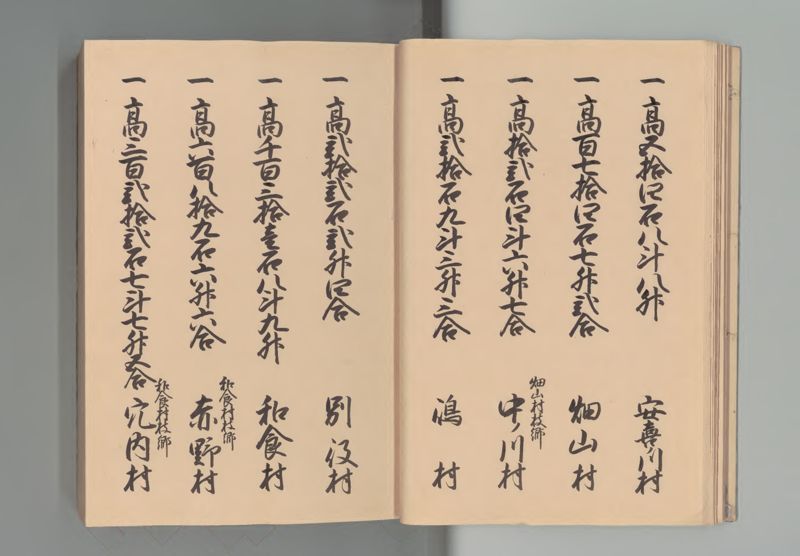 一高五拾四石八斗八升 安喜川村
一高百七拾四石七升弐合 畑山村
畑山村枝郷
一高拾弐石四斗六升七合 中ノ川村
一高弐拾石九斗三升三合 鴻村
一高弐拾弐石弐升四合 別役村
一高千百三拾壱石八斗九升 和食村
和食村枝郷
一高六百八拾九石六升六合 赤野村
和食村枝郷
一高三百弐拾弐石七斗七升五合 穴内村